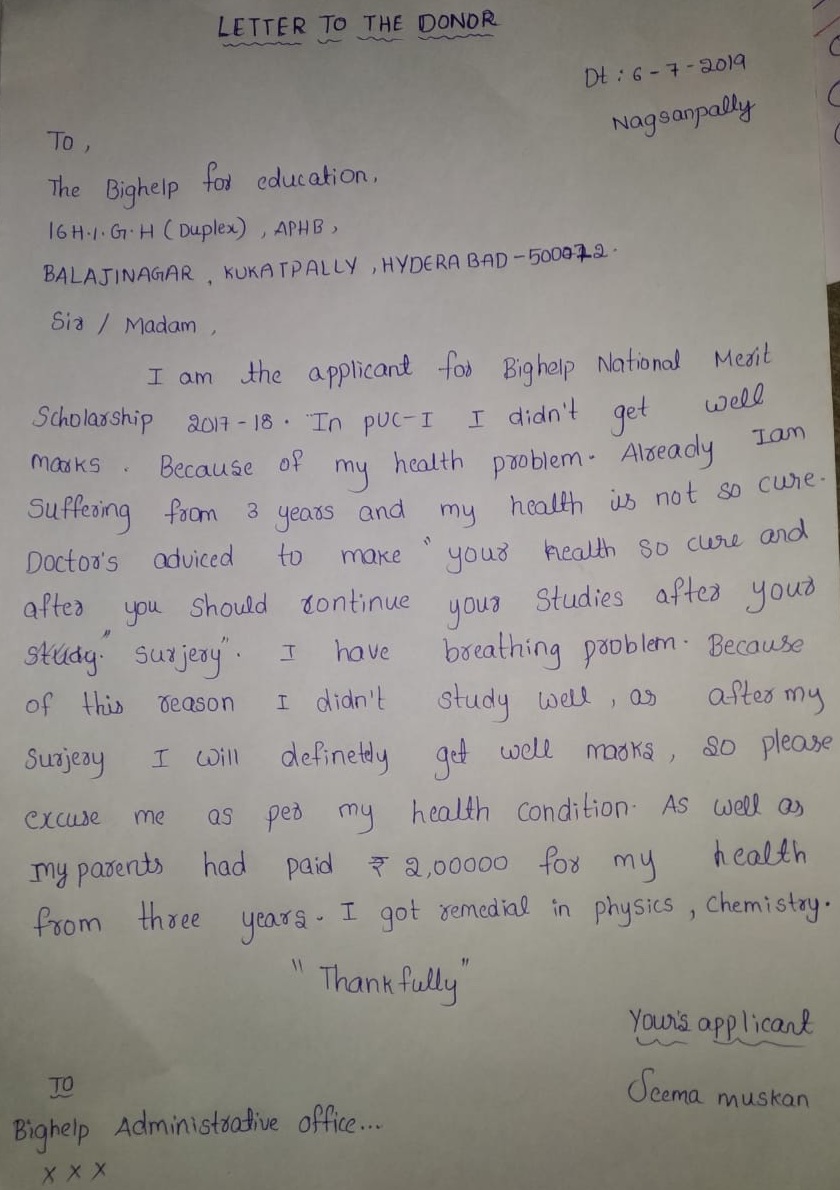 LETTER TO THE DONOR
Dt : 6 - 7 - 2019
Nagsanpally
To ,
The Bighelp for education,
16H.I.G.H (Duplex) , APHB ,
BALAJINAGAR , KUKATPALLY , HYDERABAD - 500072.
Sir / Madam ,
I am the applicant for Bighelp National Merit
Scholarship 2017 - 18 . In PUC-I I didn't get well
marks . Because of my health problem. Already I am
Suffering from 3 years and my health is not so cure.
Doctor's adviced to make " your health so cure and
after you should continue your studies after your
study." surjery". I have breathing problem. Because
of this reason I didn't study well , as after my
Surjery I will definetly get well marks , so please
excuse me as per my health condition. As well as
my parents had paid ₹ 2,00000 for my health
from three years. I got remedial in physics , chemistry.
"Thankfully"
Your's applicant
Seema muskan
TO
Bighelp Administrative office...
x x x